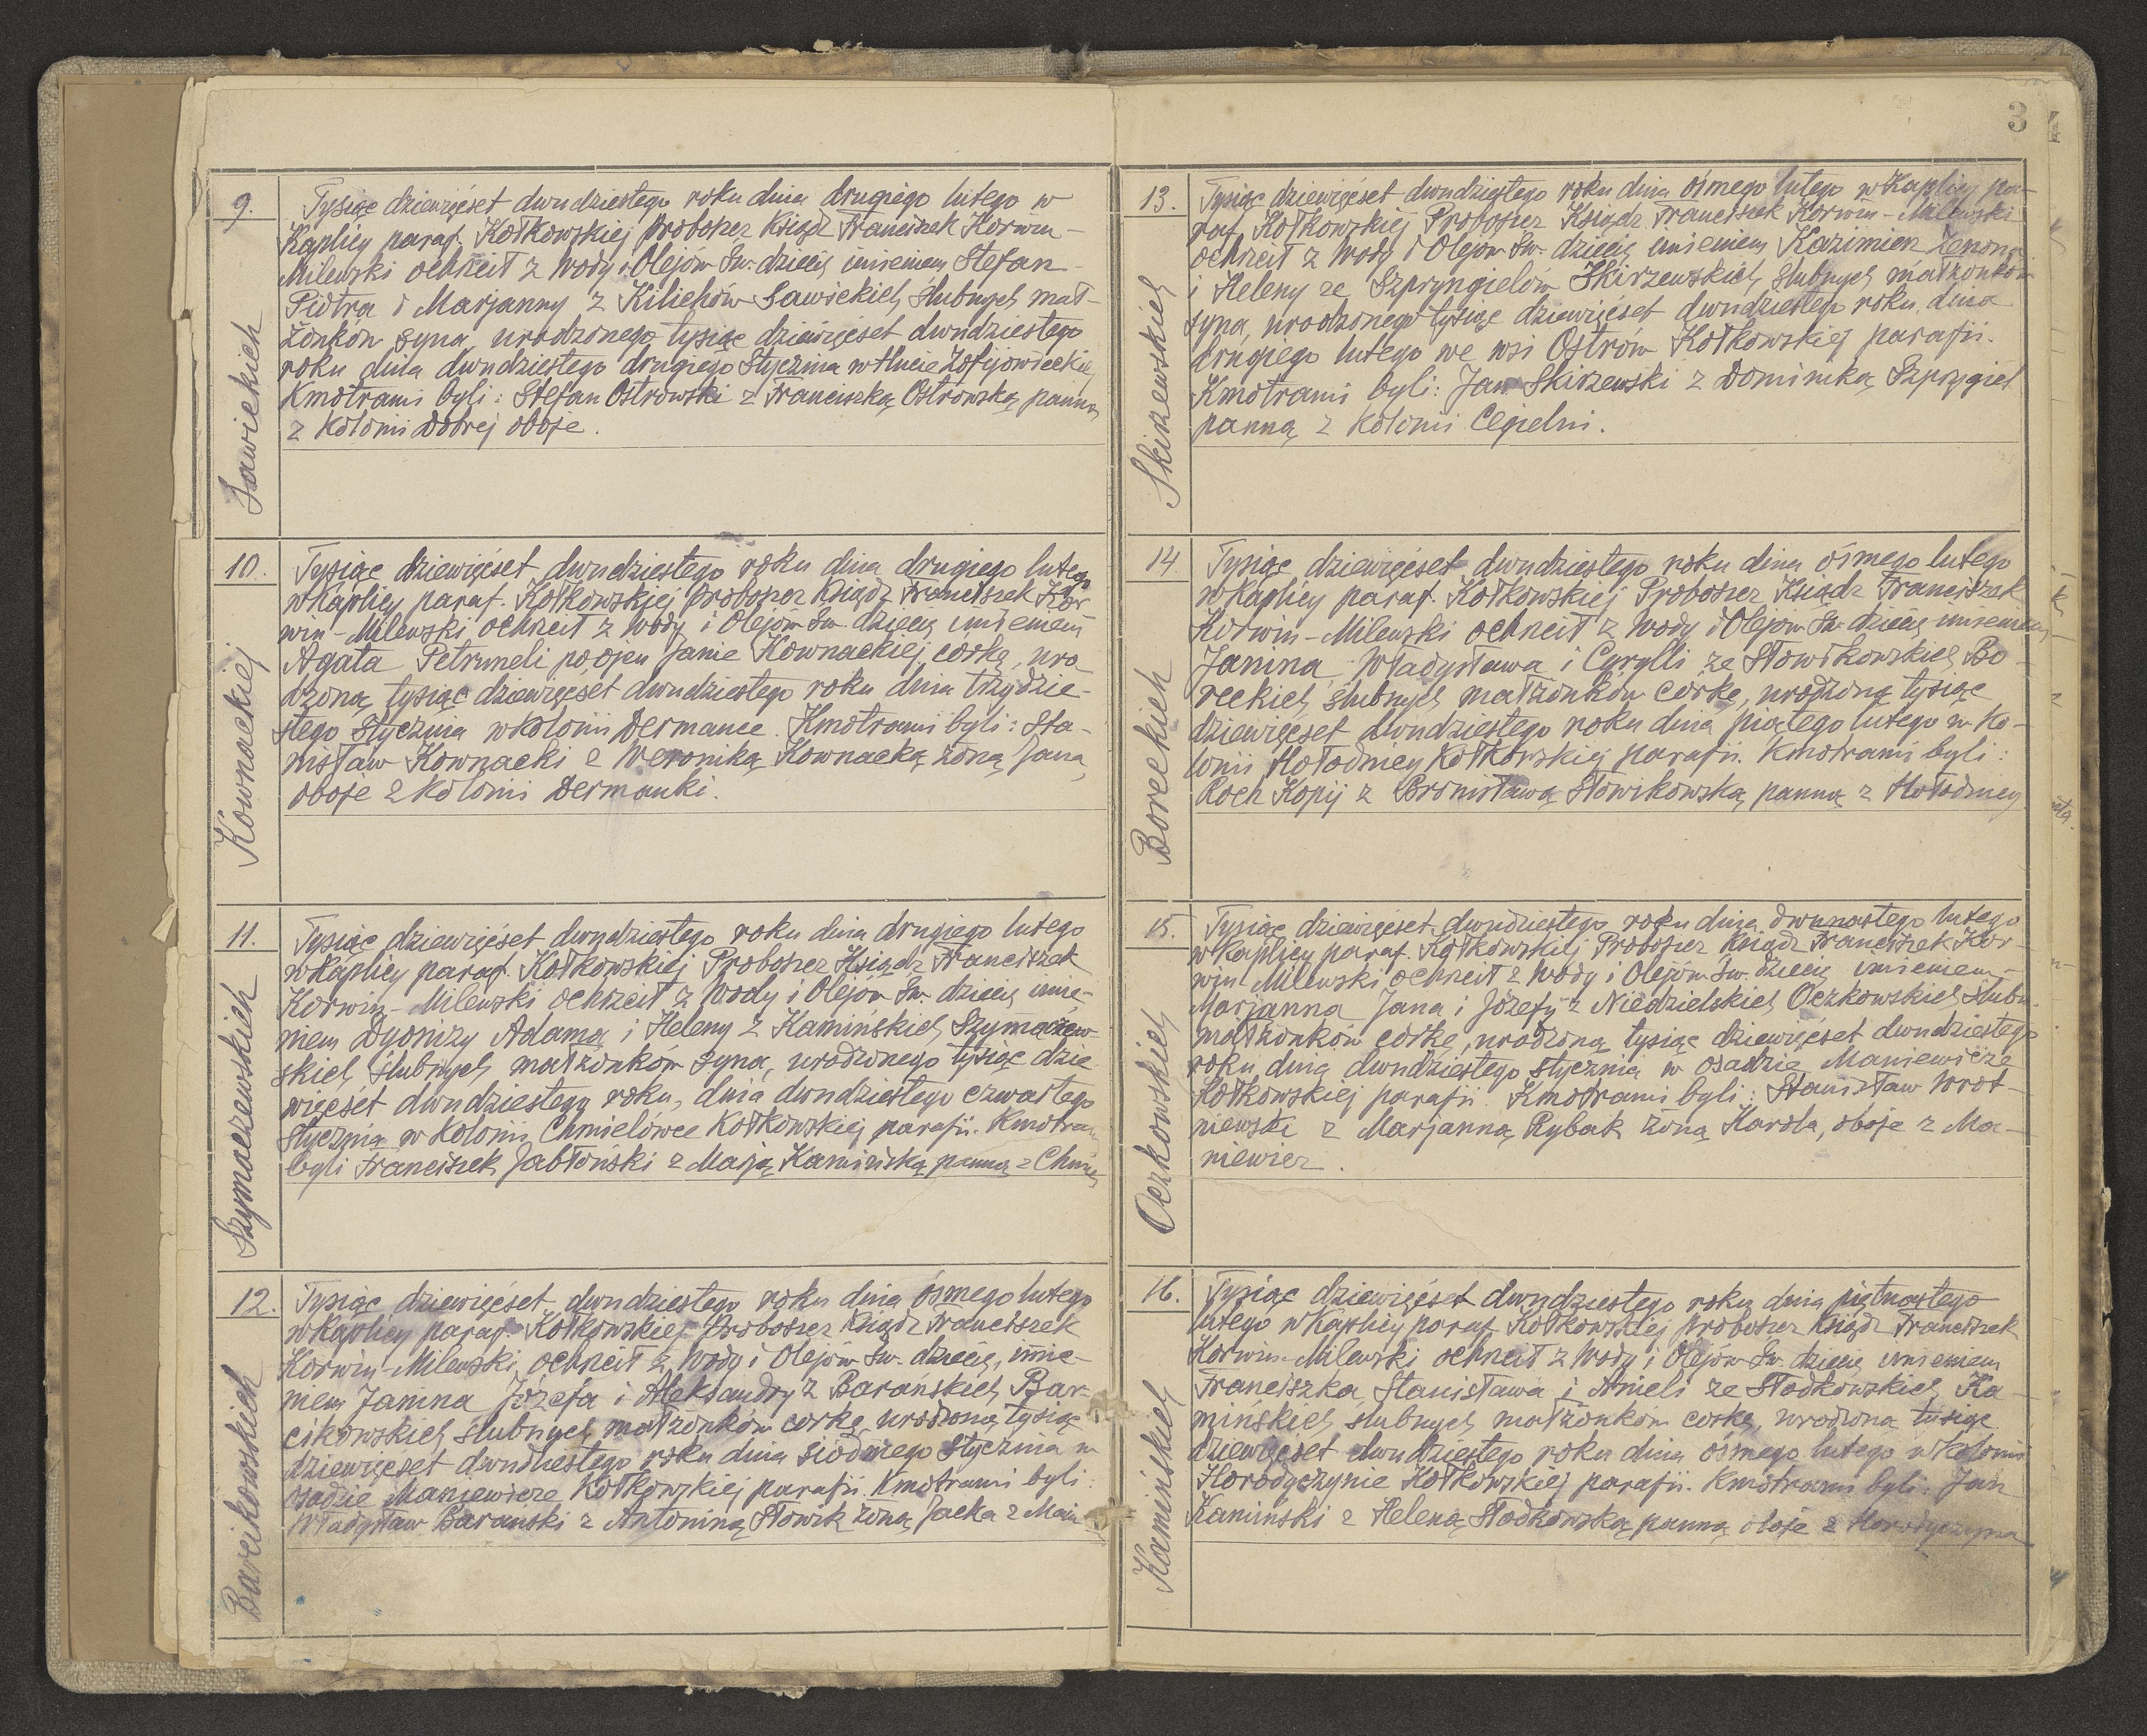 9.
Sawickich
Tysiąc dziewięćset dwudziestego roku dnia drugiego lutego w
Kaplicy paraf. Kołkowskiej proboszcz Ksiądz Franciszek Korwin-
Milewski ochrzcił z wody i Olejów Św. dziecię imieniem Stefan
Piotra i Marjanny z Kilichów Sawickich ślubnych mał-
żonków syna, urodzonego tysiąc dziewięćset dwudziestego
roku dnia dwudziestego drugiego Stycznia w Hucie
Kmotrami byli: Stefan Ostrowski z Franciszką Ostrowską panną
z Kolonii Dobrej oboje.
10.
Kownackiej
Tysiąc dziewięćset dwudziestego roku dnia drugiego lutego
w Kaplicy paraf. Kołkowskiej proboszcz Ksiądz Franciszek Kor-
win-Milewski ochrzcił z wody i Olejów Św. dziecię imieniem
Agata Petruneli po ojcu Janie Kownackiej córkę, uro
dzoną tysiąc dziewięćset dwudziestego roku dnia trzydzie-
stego Stycznia w kolonii Dermance. Kmotrami byli: Sta-
nisław Kownacki z Weroniką Kownacką żoną Jana,
oboje z kolonii Dermanki.
11.
Szymaczewskich
Tysiąc dziewięćset dwudziestego roku dnia drugiego lutego
w Kaplicy paraf. Kołkowskiej Proboszcz Ksiądz Franciszek
Korwin-Milewski ochrzcił z Wody i Olejów Św. dziecię imie-
niem Dyonizy Adama i Heleny z Kamińskich Szymaczew-
skich ślubnych małżonków syna, urodzonego tysiąc dzie
więćset dwudziestego roku, dnia dwudziestego czwartego
Stycznia w Kolonii Chmielówce Kołkowskiej parafii. Kmotrami
byli Franciszek Jabłoński z Marją Kamińską panną z
12.
Barcikowskich
Tysiąc dziewięćset dwudziestego roku dnia ósmego lutego
w Kaplicy paraf. Kołkowskiej Proboszcz Ksiądz Franciszek
Korwin-Milewski ochrzcił z Wody i Olejów Św. dziecię, imie-
niem Janina Józefa i Aleksandry z Barańskich Bar-
cikowskich ślubnych małżonków córkę urodzoną tysiąc
dziewięćset dwudziestego roku dnia siódmego Stycznia w
osadzie Maniewicze Kołkowskiej parafii. Kmotrami byli:
Władysław Baranski z Antoniną Słowik żoną Jacka z
3
13.
Skirzewskich
Tysiąc dziewięćset dwudziestego roku dnia ósmego lutego w Kaplicy pa-
raf. Kołkowskiej Proboszcz Ksiądz Franciszek Korwin-Milewski
ochrzcił z Wody i Olejów Św. dziecię imieniem Kazimierz Zenona
i Heleny ze Szpryngielów Skirzewskich ślubnych małżonków
syna, urodzonego tysiąc dziewięćset dwudziestego roku, dnia
drugiego lutego we wsi Ostrów Kołkowskiej parafii.
Kmotrami byli: Jan Skirzewski z Dominiką Szprygiel
panną z kolonii Cegielni.
14.
Boreckich
Tysiąc dziewięćset dwudziestego roku dnia ósmego lutego
w Kaplicy paraf. Kołkowskiej Proboszcz Ksiądz Franciszek
Korwin-Milewski ochrzcił z Wody i Olejów Św. dziecię imieniem
Janina, Władysława i Cyrylli ze Słowikowskich Bo-
reckich, ślubnych małżonków córkę, urodzoną tysiąc
dziewięćset dwudziestego roku dnia piątego lutego w Ko-
lonii Hołodnicy Kołkowskiej parafii. Kmotrami byli:
Roch Kopij z Bronisławą Słowikowską panną z Hołodnicy
15.
Oczkowskich
Tysiąc dziewięćset dwudziestego roku dnia dwunastego lutego
w Kaplicy paraf. Kołkowskiej Proboszcz Ksiądz Franciszek Kor-
win-Milewski ochrzcił z Wody i Olejów Św. dziecię imieniem-
Marjanna Jana i Józefy z Niedzielskich Oczkowskich ślubn.
małżonków córkę, urodzoną tysiąc dziewięćset dwudziestego
roku, dnia dwudziestego stycznia w osadzie Maniewicze
Kołkowskiej parafii. Kmotrami byli: Stanisław Wrot-
niewski z Marjanną Rybak żoną Karola, oboje z Ma-
niewicz.
16.
Kamińskich
Tysiąc dziewięćset dwudziestego roku dnia piętnastego
lutego w Kaplicy paraf. Kołkowskiej proboszcz Ksiądz Franciszek
Korwin-Milewski ochrzcił z Wody i Olejów Św. dziecię imieniem
Franciszka Stanisława i Anieli ze Słodkowskich Ka-
mińskich ślubnych małżonków córkę, urodzoną tysiąc
dziewięćset dwudziestego roku dnia ósmego lutego w kolonii
Horodyszczynie Kołkowskiej parafii. Kmotrami byli: Jan
Kamiński z Heleną Słodkowską panną oboje z